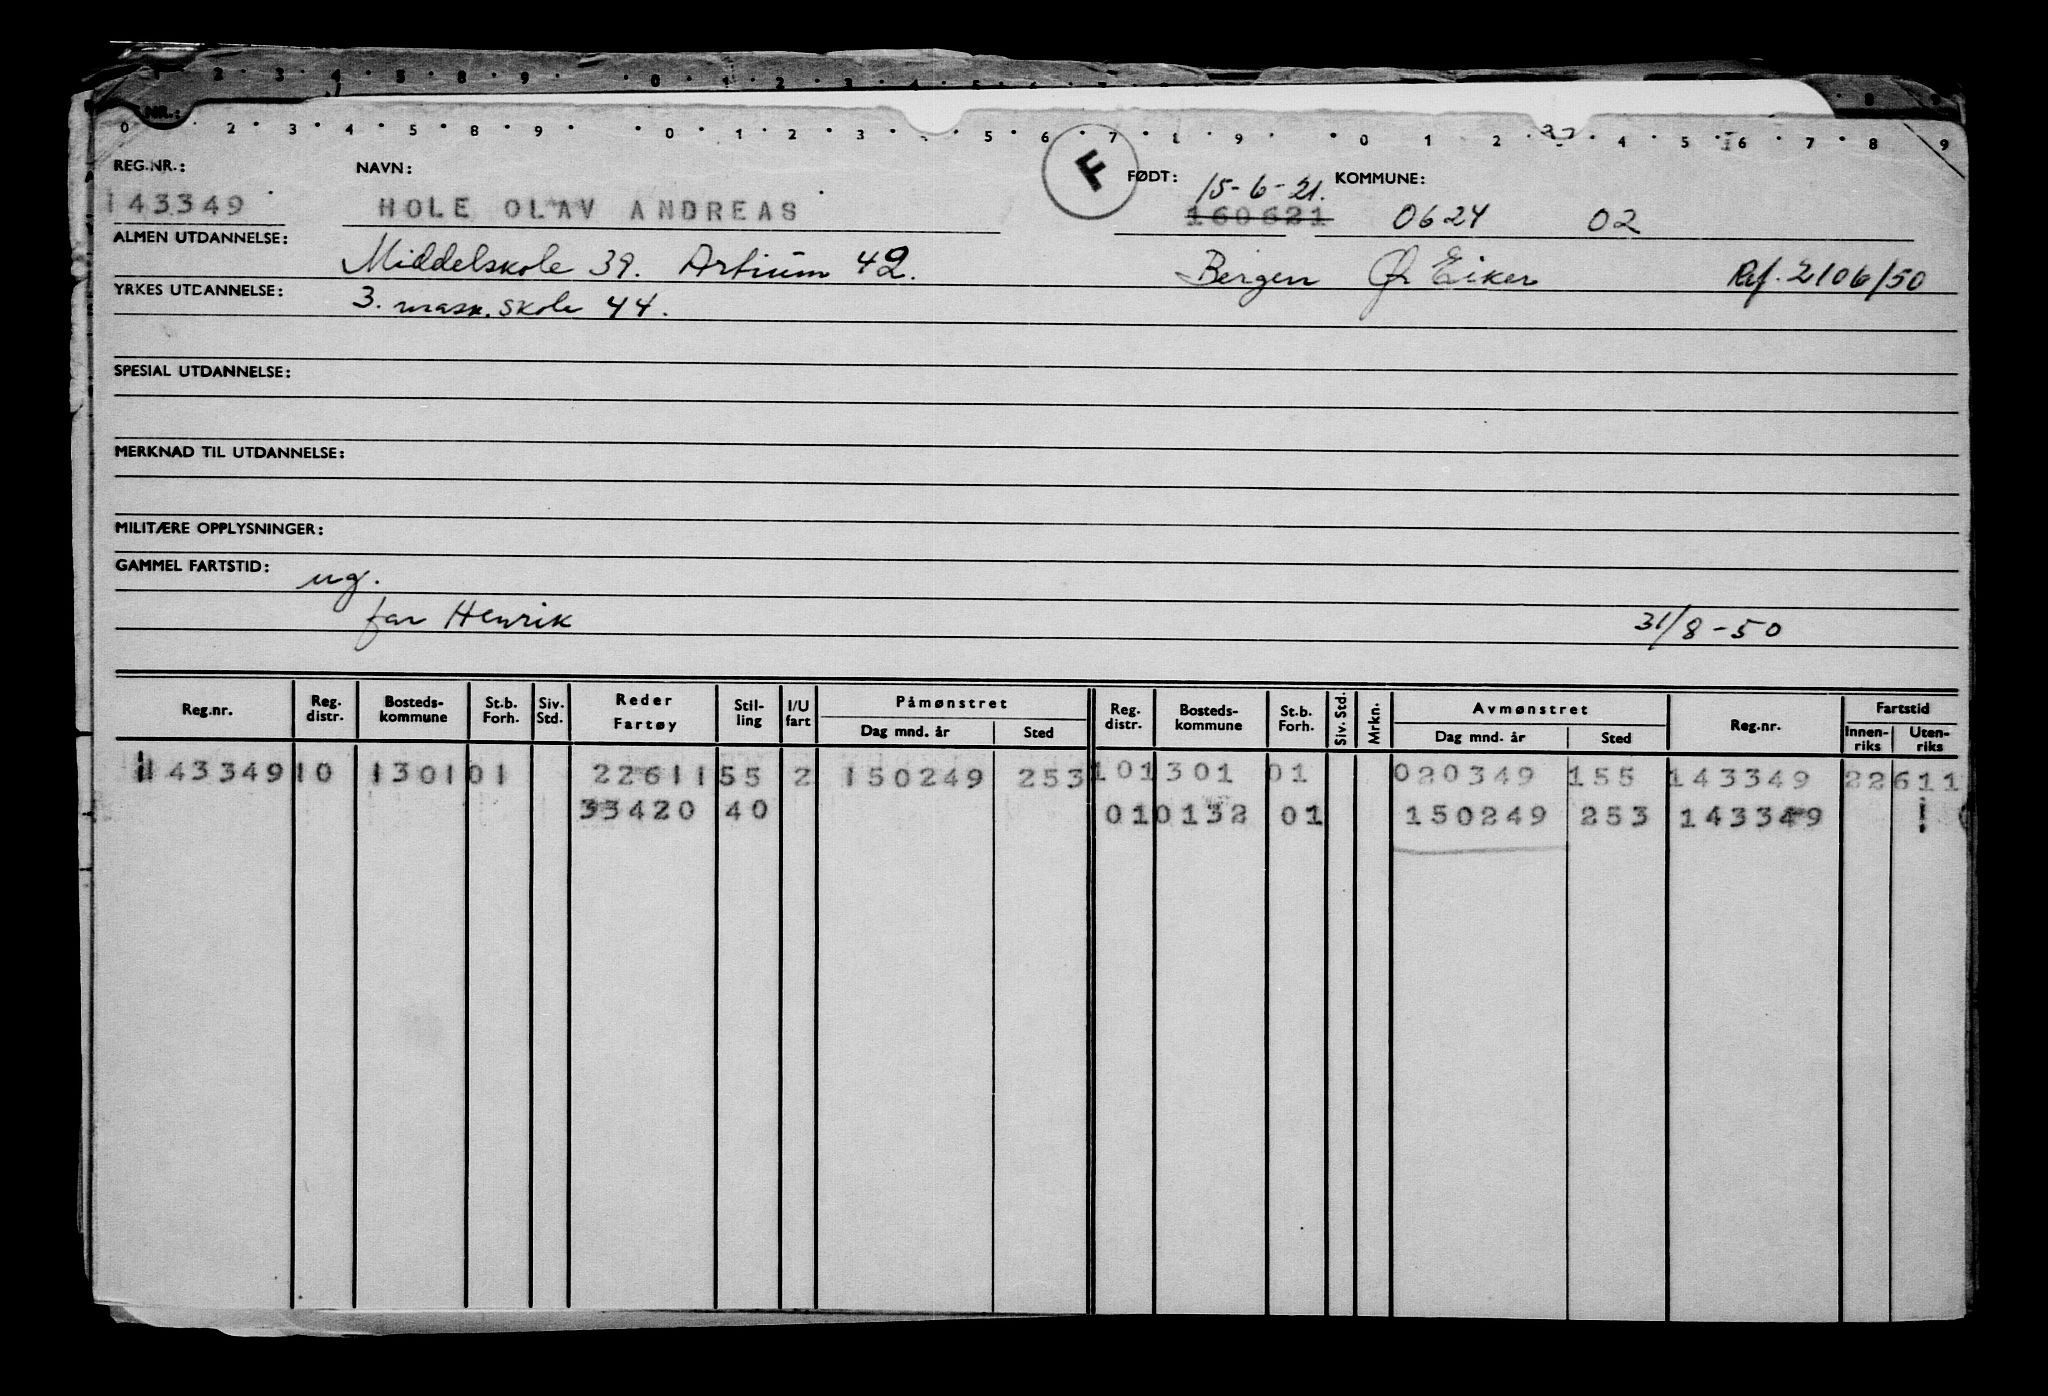 1 2 3 4 5 8 9 0 1 2 3 4 5 6 7 8
NR.:
0 2 3 4 5 8 9 0 1 2 3 5 6 7 9 0 1 2 3 4 5 6 7 8 9
REG.NR.: NAVN: F FØDT: 15-6-21. KOMMUNE:
143349 HOLE OLAV ANDREAS 160621 0624 02
ALMEN UTDANNELSE: Middelskole 39. Artium 42. Bergen Ø Eiker Ref. 2106/50
YRKES UTDANNELSE: 3. mask. skole 44.
SPESIAL UTDANNELSE:
MERKNAD TIL UTDANNELSE:
MILITÆRE OPPLYSNINGER:
GAMMEL FARTSTID: ug.
far Henrik 31/8-50
Reg.nr. Reg. distr. Bosteds-kommune St.b. Forh. Siv. Std. Reder Fartøy Stil-ling I/U fart Påmønstret Dag mnd. år Sted Reg. distr. Bosteds-kommune St.b. Forh. Siv. Std. Mrkn. Avmønstret Dag mnd. år Sted Reg.nr. Fartstid Innen-riks Uten-riks
143349 10 1301 01 22611 55 2 150249 253 10 1301 01 020349 155 143349 22611
33420 40 01 0132 01 150249 253 143349 1